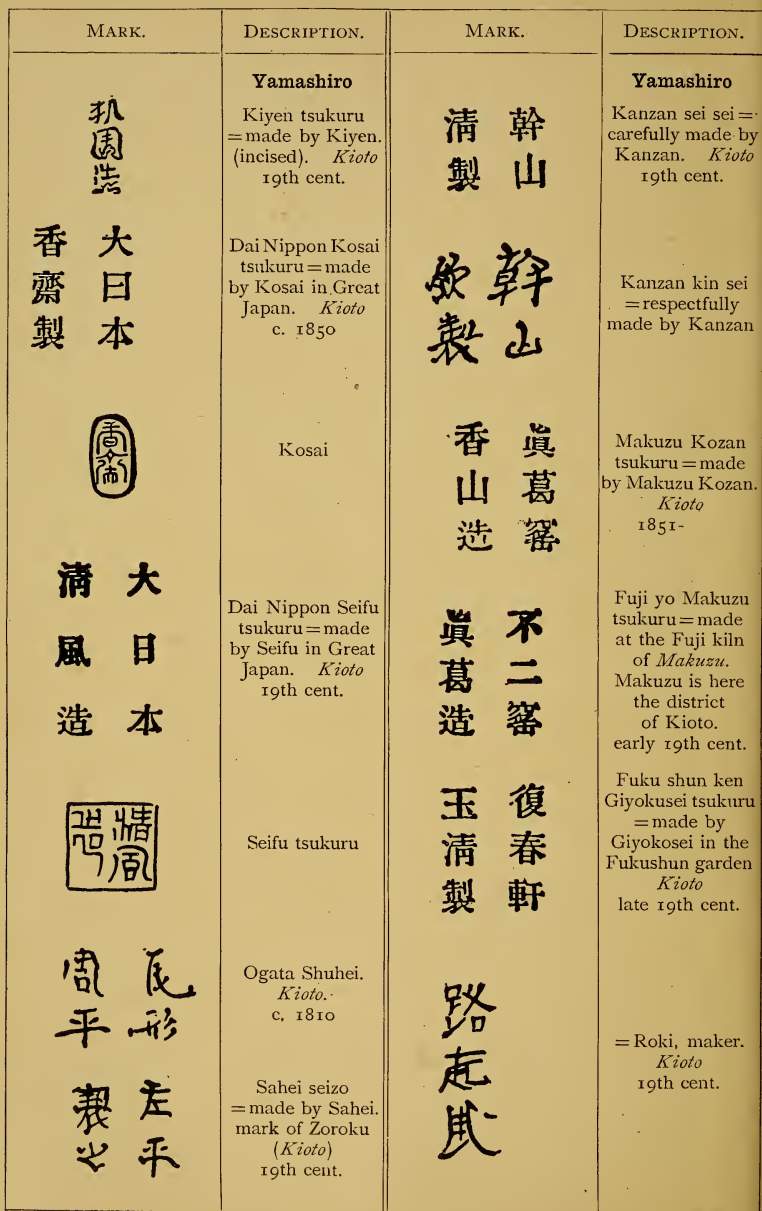 MARK.
DESCRIPTION.
Yamashiro
園造
Kiyen tsukuru
=made by Kiyen.
(incised). Kioto
19th cent.
大日本
香齋製
Dai Nippon Kosai
tsukuru=made
by Kosai in Great
Japan. Kioto
c. 1850
香齋
Kosai
大日本
清風造
Dai Nippon Seifu
tsukuru=made
by Seifu in Great
Japan. Kioto
19th cent.
清風
造
Seifu tsukuru
尾形
周平
Ogata Shuhei.
Kioto.
c. 1810
左平
製之
Sahei seizo
=made by Sahei.
mark of Zoroku
(Kioto)
19th cent.
MARK.
DESCRIPTION.
Yamashiro
幹山
清製
Kanzan sei sei=
carefully made by
Kanzan. Kioto
19th cent.
幹山
欽製
Kanzan kin sei
=respectfully
made by Kanzan
眞葛窰
香山造
Makuzu Kozan
tsukuru=made
by Makuzu Kozan.
Kioto
1851-
不二窰
眞葛造
Fuji yo Makuzu
tsukuru=made
at the Fuji kiln
of Makuzu.
Makuzu is here
the district
of Kioto.
early 19th cent.
復春軒
玉清製
Fuku shun ken
Giyokusei tsukuru
=made by
Giyokosei in the
Fukushun garden
Kioto
late 19th cent.
路起
=Roki, maker.
Kioto
19th cent.